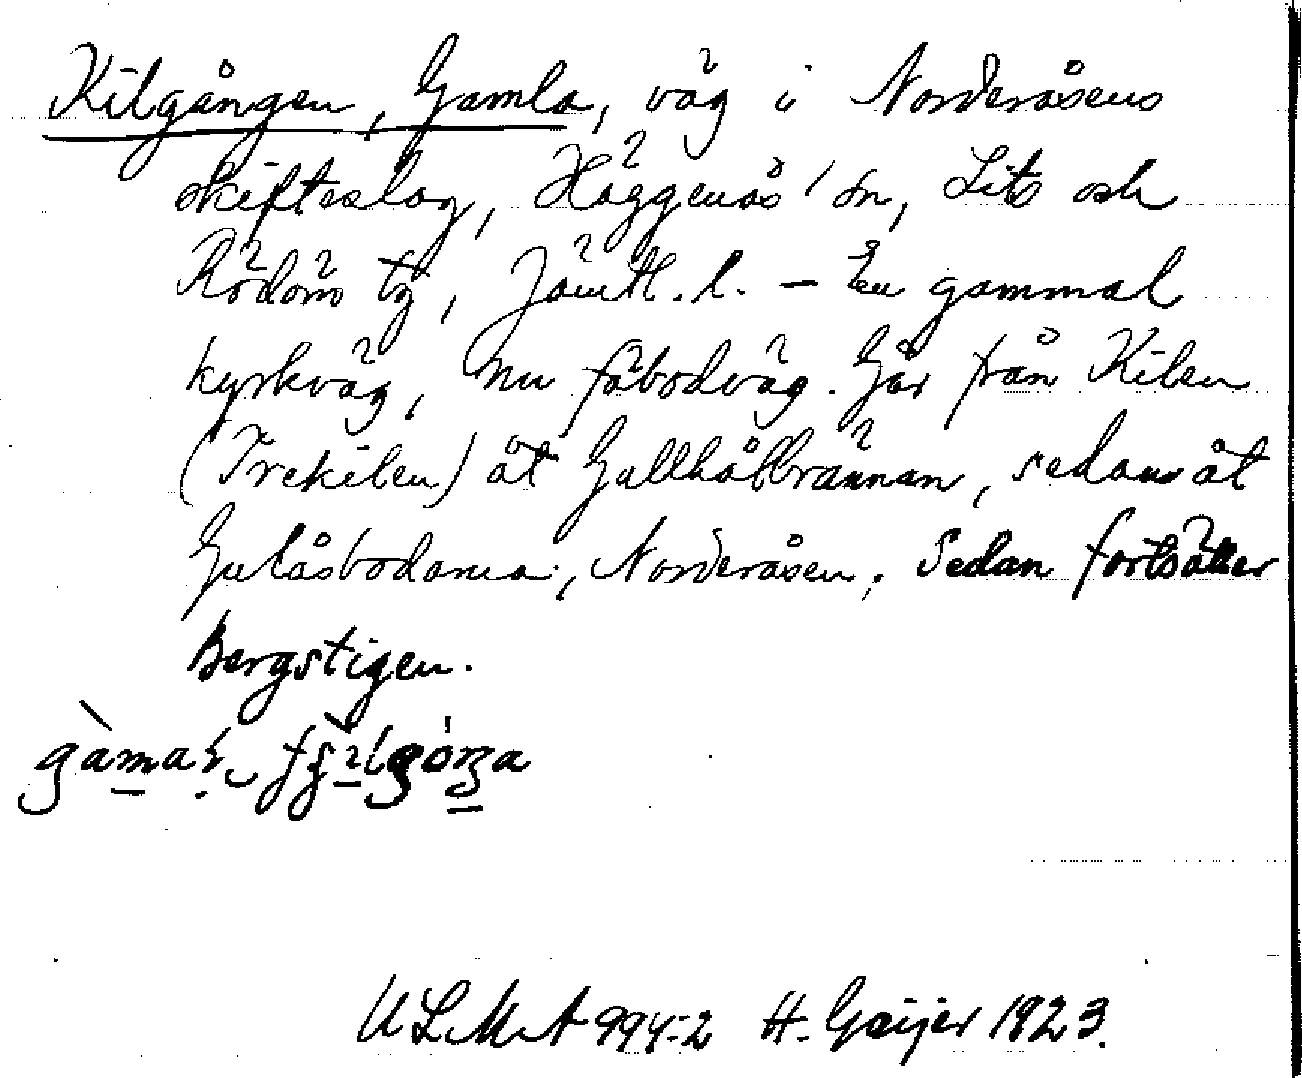 Kilgången, Gamla, väg i Norderåsens
skifteslag, Häggenås' sn, Lits och
Rödöns tg, Jämtl. l. – En gammal
kyrkväg, nu fäbodväg. Går från Kilen
(Trekilen) åt Gullhålbrännan, sedan åt
Gulåsbodarna, Norderåsen. Sedan fortsätter
Bergstigen.
ULMA 994:2 H. Geijer 1923.